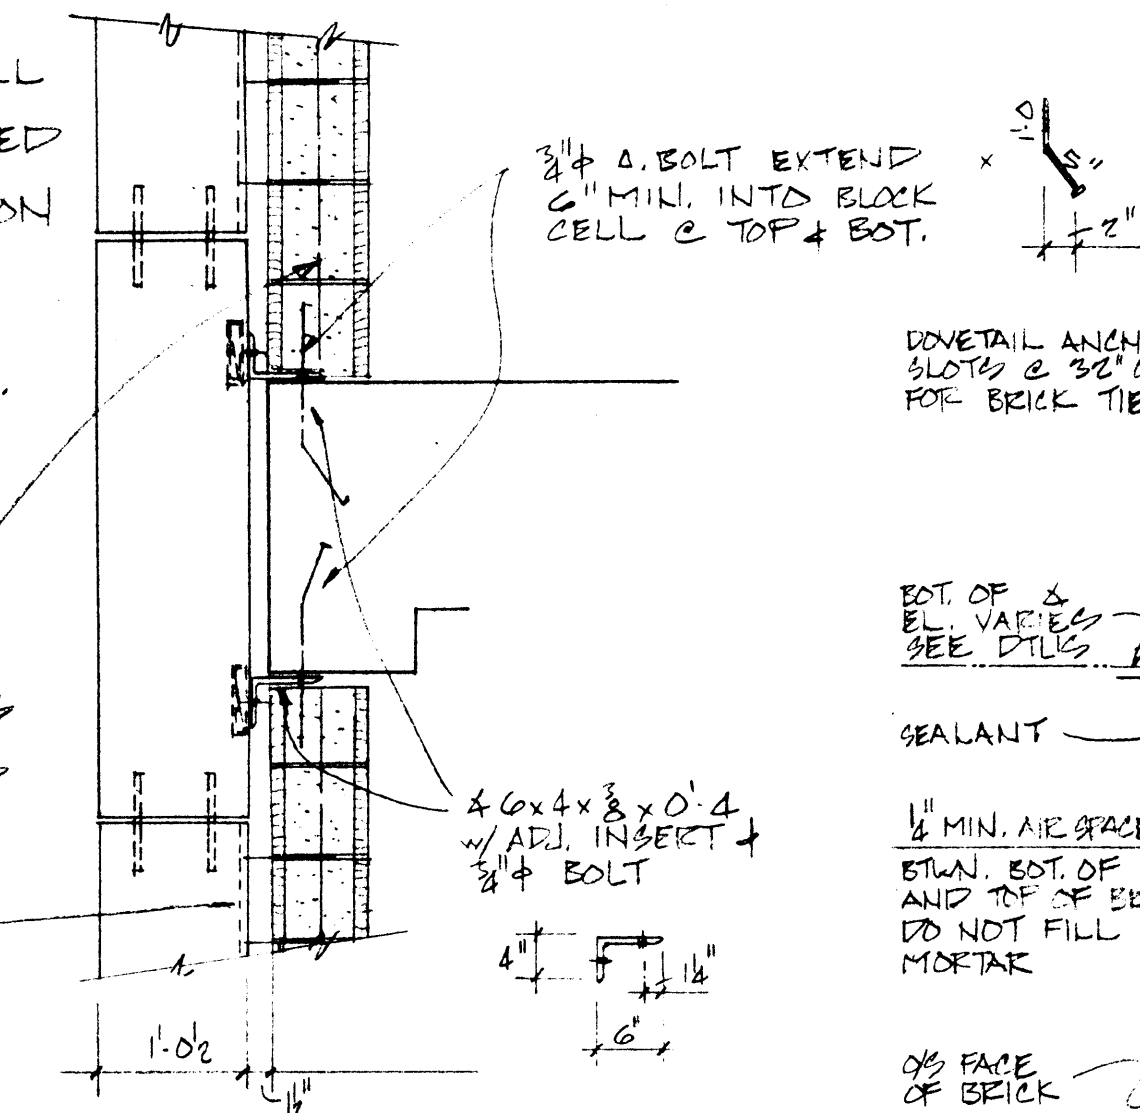 ON
3/4"ϕ A. BOLT EXTEND
6" MIN. INTO BLOCK
CELL @ TOP & BOT.
x
1'-0
5"
2"
DOVETAIL
SLOTS @ 32"
FOR BRICK
BOT. OF ∡
EL. VARIES
SEE DTLS
SEALANT
1/4" MIN. AIR SPACE
BTWN. BOT. OF
AND TOP OF
DO NOT FILL
MORTAR
O/S FACE
OF BRICK
∡ 6 x 4 x 3/8 x 0'-4
w/ ADJ. INSERT &
3/4"ϕ BOLT
4"
1 1/4"
6"
1'-0 1/2
1 1/2"